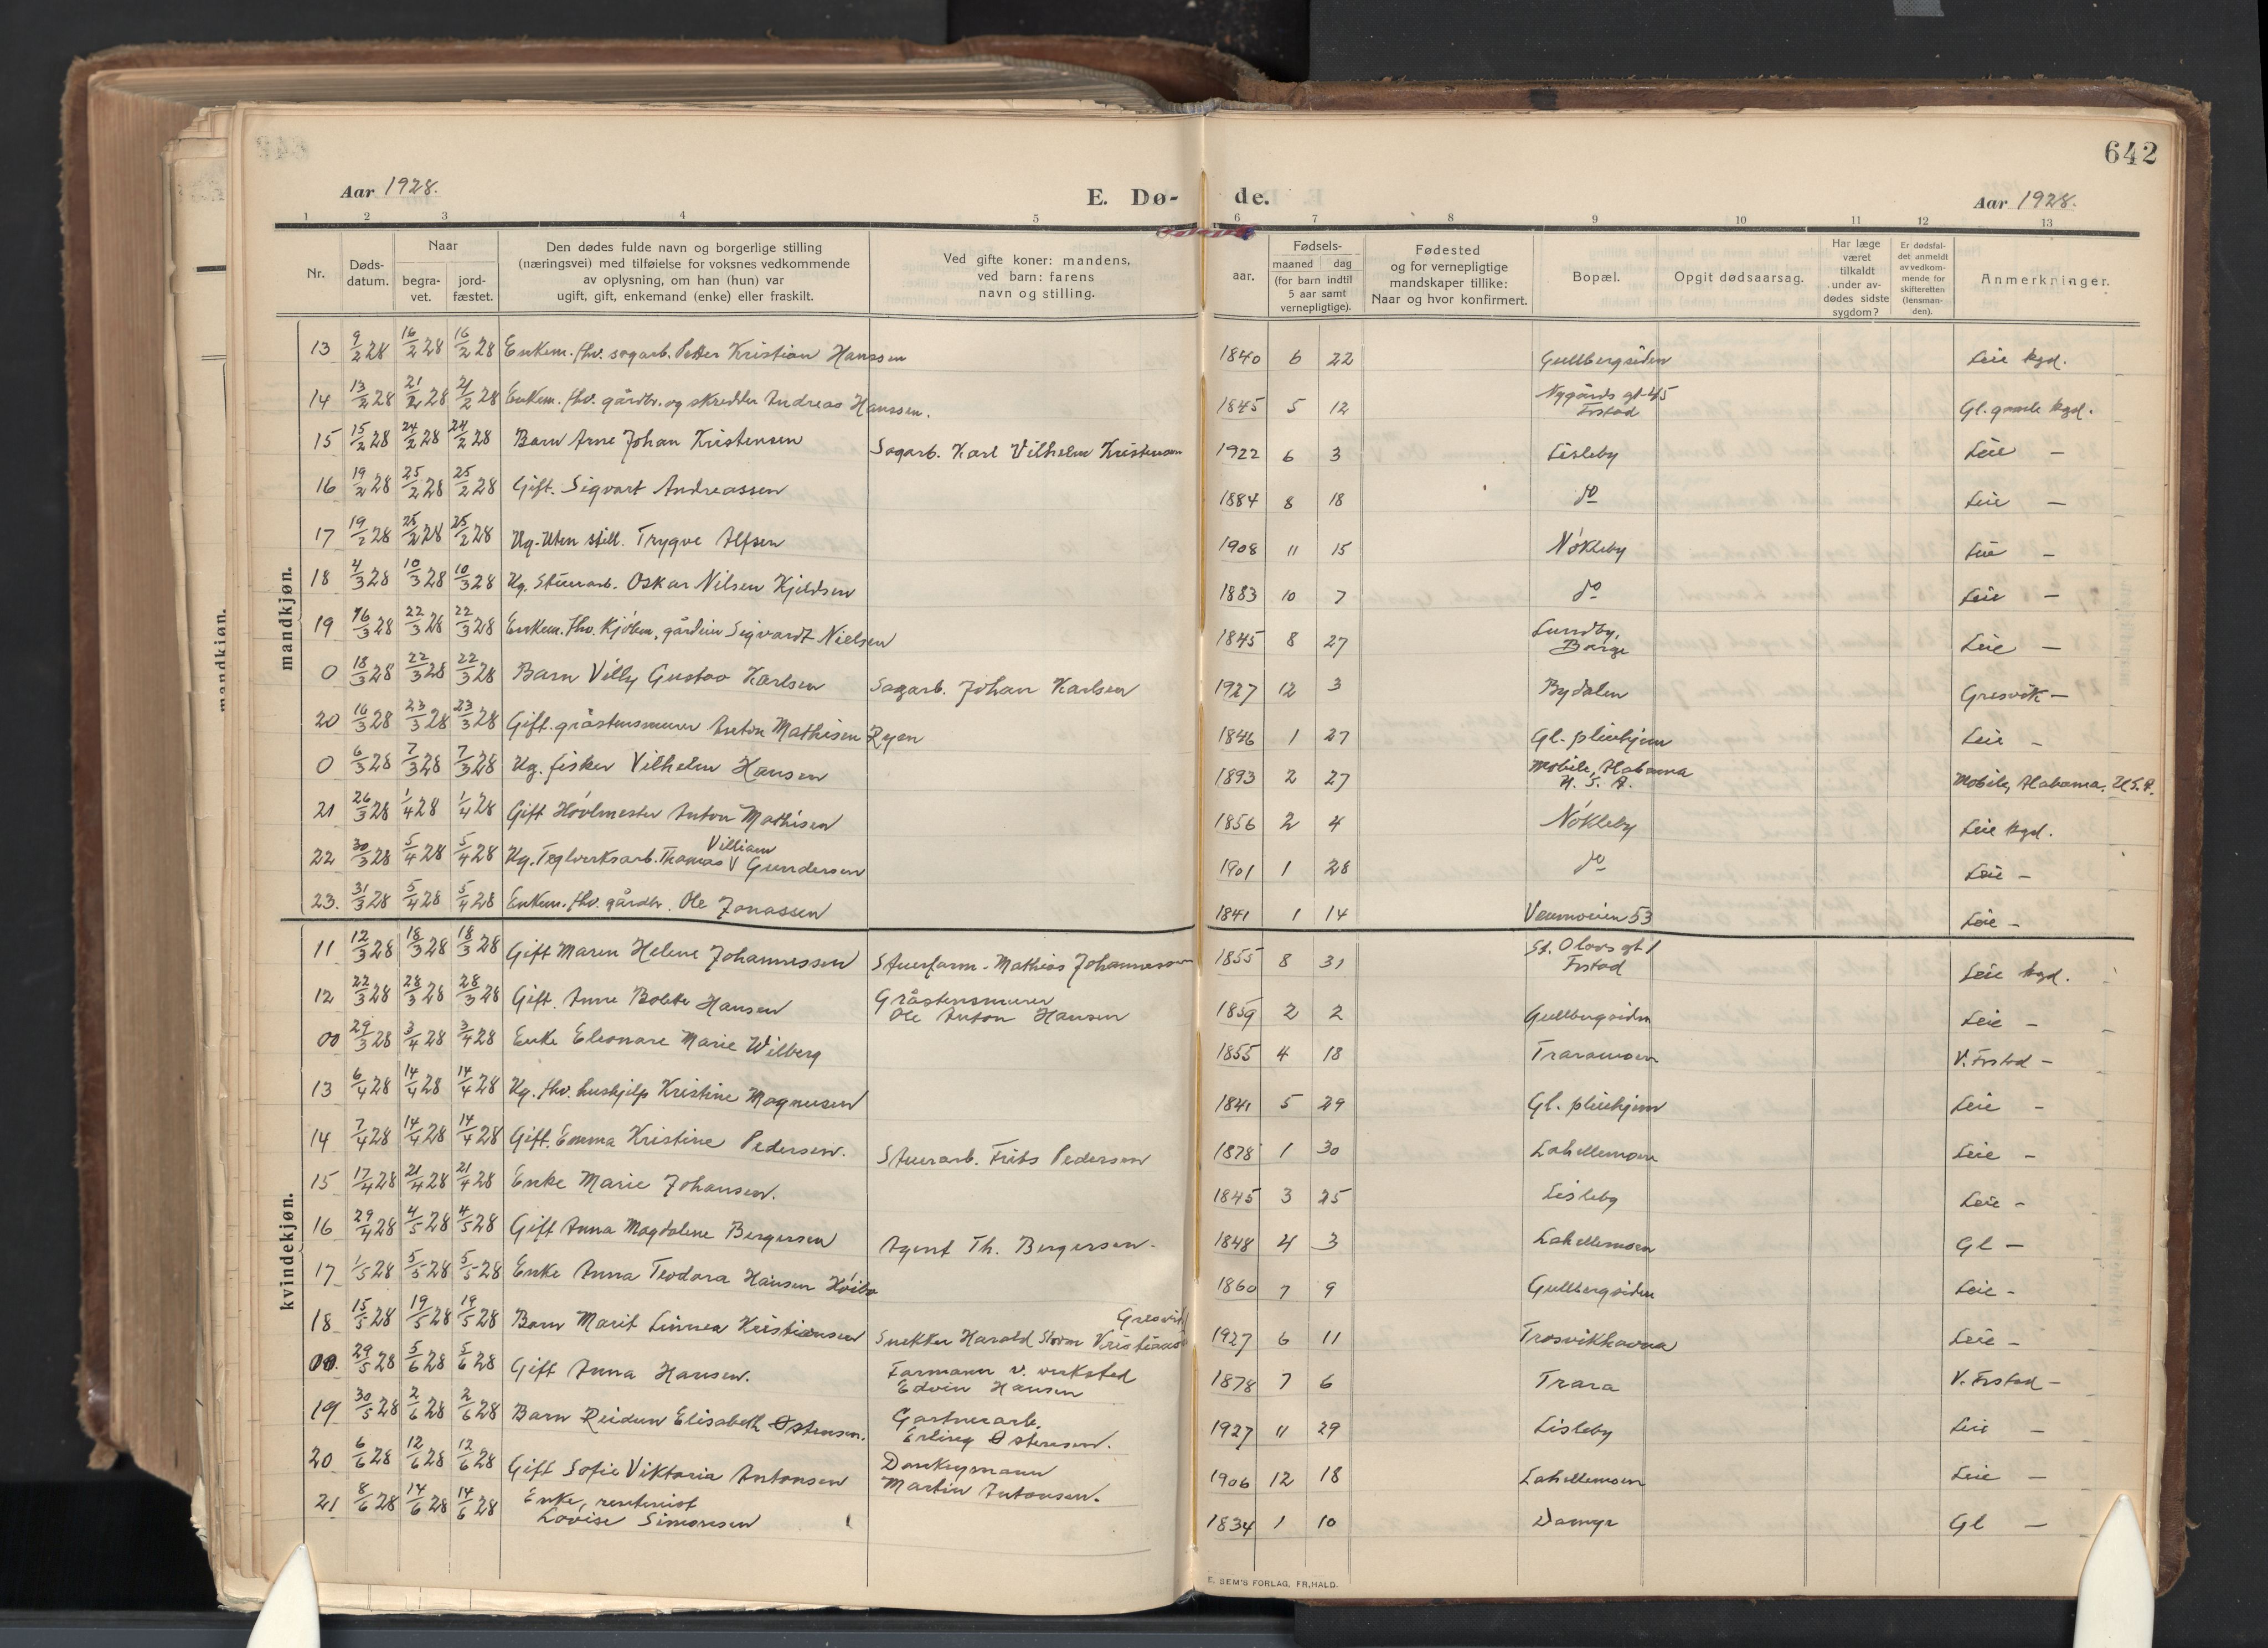 642
Aar 1928.
E. Dø- de.
Aar 1928.
1 2 3 4 5 6 7 8 9 10 11 12 13
Nr.
Døds-
datum.
Naar
begra-
vet.
jord-
fæstet.
Den dødes fulde navn og borgerlige stilling
(næringsvei) med tilføielse for voksnes vedkommende
av oplysning, om han (hun) var
ugift, gift, enkemand (enke) eller fraskilt.
Ved gifte koner: mandens,
ved barn: farens
navn og stilling.
aar.
Fødsels-
maaned dag
(for barn indtil
5 aar samt
vernepligtige).
Fødested
og for vernepligtige
mandskaper tillike:
Naar og hvor konfirmert.
Bopæl.
Opgit dødsaarsag.
Har læge
været
tilkaldt
under av-
dødes sidste
sygdom?
Er dødsfal-
det anmeldt
av vedkom-
mende for
skifteretten
(lensman-
den).
Anmerkninger.
mandkjøn.
mandkjøn.
13 9/2 28 16/2 28 16/2 28 Enkem. fhv. sagarb. Petter Kristian Hanssen 1840 6 22 Gullbergsiden Leie kgd.
14 13/2 28 21/2 28 21/2 28 Enkem. fhv. gårdbr. og skredder Andreas Hanssen. 1845 5 12 Nygårds gt. 45
Frstad Gl. gamle kgd.
15 15/2 28 24/2 28 24/2 28 Barn Arne Johan Kristensen Sagarb. Karl Vilhelm Kristensen 1922 6 3 Lisleby Leie —
16 19/2 28 25/2 28 25/2 28 Gift. Sigvart Andreassen 1884 8 18 do Leie —
17 19/2 28 25/2 28 25/2 28 Ug. Uten still. Trygve Alfsen 1908 11 15 Nökleby Leie —
18 4/3 28 10/3 28 10/3 28 Ug. Stuerarb. Oskar Nilsen Kjeldsen 1883 10 7 do Leie —
19 16/3 28 22/3 28 22/3 28 Enkem. fhv. Kjöbm., gårdeier Sigvardt Nielsen 1845 8 27 Lundby,
Borge Leie —
0 18/3 28 22/3 28 22/3 28 Barn Villy Gustav Karlsen Sagarb. Johan Karlsen 1927 12 3 Bydalen Gresvik —
20 16/3 28 23/3 28 23/3 28 Gift. gråstensmurer Anton Mathisen Ryen 1846 1 27 Gl. pleiehjem Leie —
0 6/3 28 7/3 28 7/3 28 Ug. fisker Vilhelm Hansen 1893 2 27 Mobile, Alabama
U. S. A. Mobile, Alabama. U.S.A.
21 26/3 28 1/4 28 1/4 28 Gift Hövlmester Anton Mathisen 1856 2 4 Nökleby Leie kgd.
22 30/3 28 5/4 28 5/4 28 Ug. Teglverksarb. Thomas V Villiam Gundersen 1901 1 28 do Leie —
23. 31/3 28 5/4 28 5/4 28 Enkem. fhv. gårdbr. Ole Jonassen 1841 1 14 Veumveien 53 Leie —
kvindekjøn.
11 12/3 28 18/3 28 18/3 28 Gift Maren Helene Johannessen Stuerform. Mathias Johannessen 1855 8 31 St. Olavs gt 1
Frstad Leie kgd.
12 22/3 28 28/3 28 28/3 28 Gift. Anne Bolette Hansen Gråstensmurer
Ole Anton Hansen 1859 2 2 Gullbergsiden Leie —
00 29/3 28 3/4 28 3/4 28 Enke Eleonare Marie Wilberg 1855 4 18 Traramoen V. Frstad —
13 6/4 28 14/4 28 14/4 28 Ug. fhv. hushjelp Kristine Magnusen 1841 5 29 Gl. pleiehjem Leie —
14 7/4 28 14/4 28 14/4 28 Gift. Emma Kristine Pedersen. Stuerarb. Frits Pedersen 1878 1 30 Lahellemoen Leie —
15 17/4 28 21/4 28 21/4 28 Enke Marie Johansen. 1845 3 25 Lisleby Leie —
16 29/4 28 4/5 28 4/5 28 Gift Anna Magdalene Bergersen Agent Th. Bergersen. 1848 4 3 Lahellemoen Gl —
17 1/5 28 5/5 28 5/5 28 Enke Anna Teodora Hansen Höibo 1860 7 9 Gullbergsiden Leie —
18 15/5 28 19/5 28 19/5 28 Barn Marit Linnea Kristiansen Snekker Harald Storm Kristiansen Gresvik 1927 6 11 Trosvikhavna Leie —
00. 29/5 28 5/6 28 5/6 28 Gift Anna Hansen. Formann v. verksted
Edvin Hansen 1878 7 6 Trara V. Frstad —
19 30/5 28 2/6 28 2/6 28 Barn Reidun Elisabeth Østensen. Gartnerarb.
Erling Østensen. 1927 11 29 Lisleby Leie —
20 6/6 28 12/6 28 12/6 28 Gift Sofie Viktoria Antonsen Donkeymann
Martin Antonsen. 1906 12 18 Lahellemoen Leie —
21 8/6 28 14/6 28 14/6 28 Enke, rentenist
Lovise Simonsen 1834 1 10 Damyr Gl —
E. SEM'S FORLAG, FR.HALD.